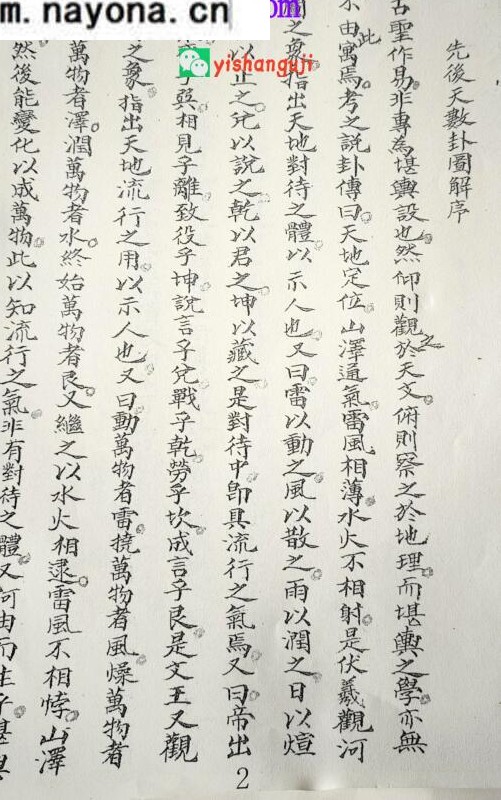 m.nayona.cn
om
yishanguji
先後天數卦圖解序
古聖作易非專為堪輿設也然仰則觀之於天文俯則察之於地理而堪輿之學亦無
不由此寓焉考之說卦傳曰天地定位山澤通氣雷風相薄水火不相射是伏羲觀河
之象指出天地對待之體以示人也又曰雷以動之風以散之雨以潤之日以烜
以止之兌以說之乾以君之坤以藏之是對待中即具流行之氣焉又曰帝出
巽相見乎離致役乎坤說言乎兌戰乎乾勞乎坎成言乎艮是文王又觀
之象指出天地流行之用以示人也又曰動萬物者雷撓萬物者風燥萬物者
萬物者澤潤萬物者水終始萬物者艮又繼之以水火相逮雷風不相悖山澤
然後能變化以成萬物此以知流行之氣非有對待之體又何由而生乎堪輿
2